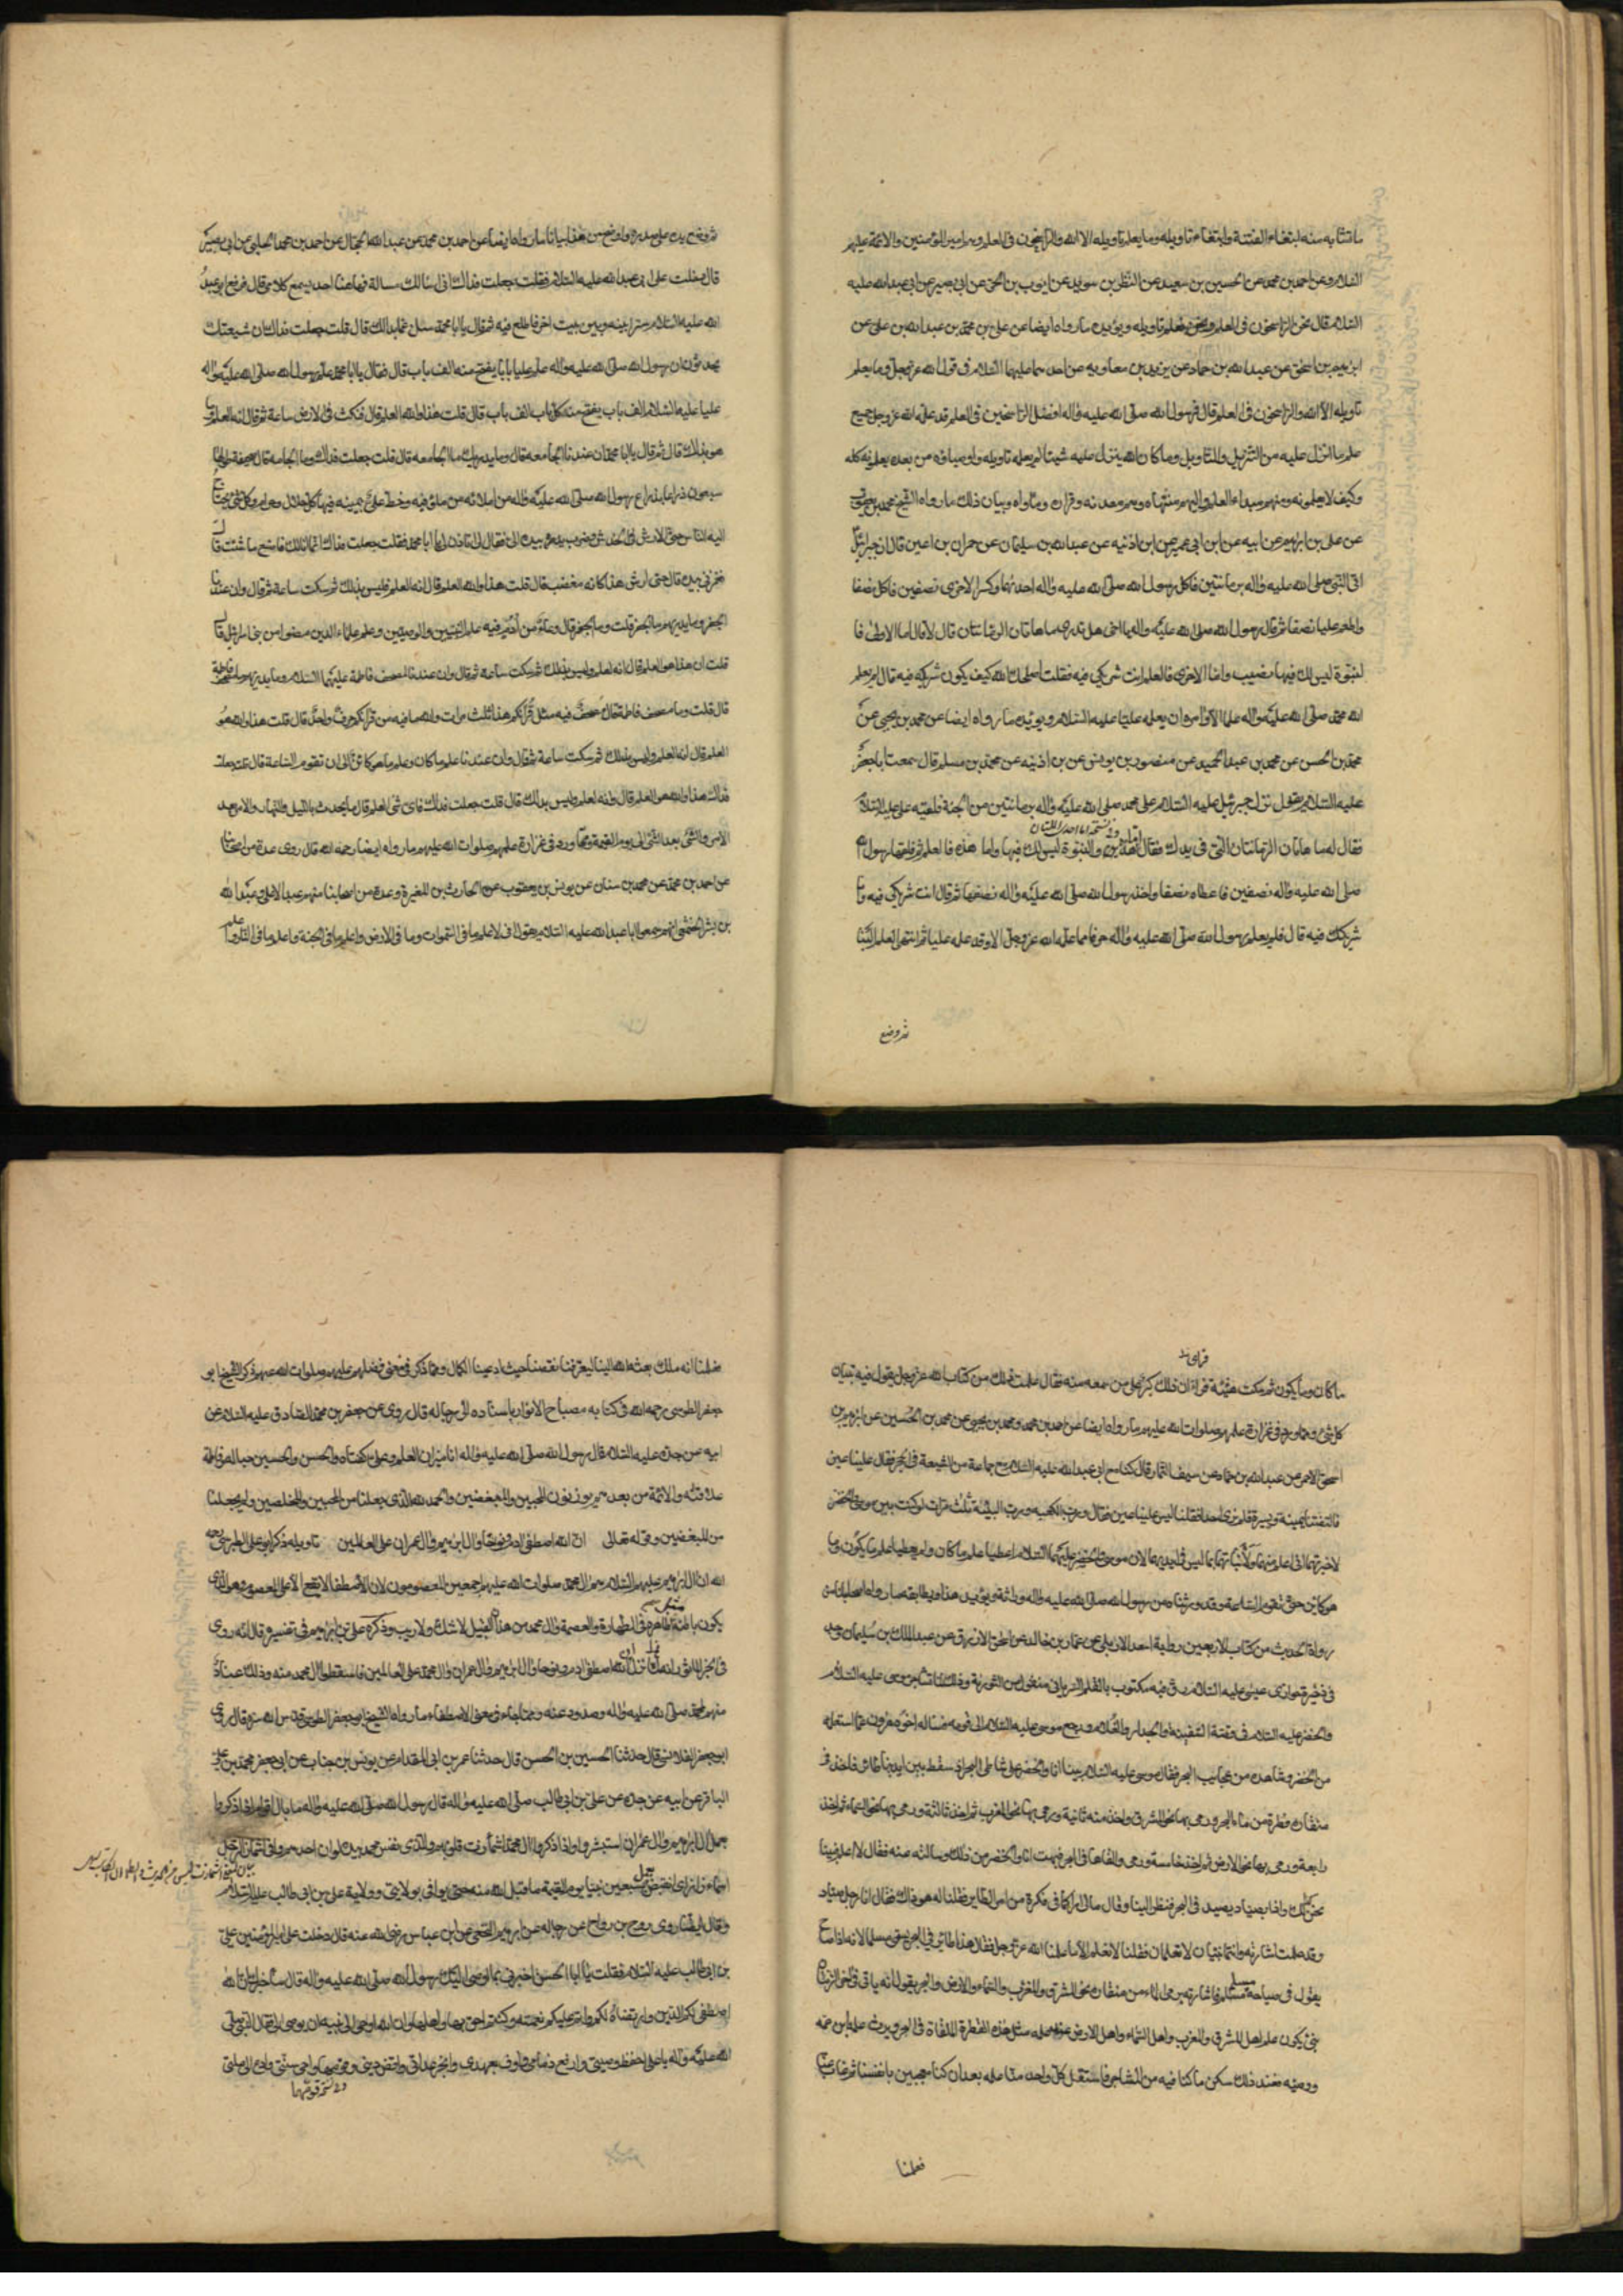 ما تشابه منه ابتغاء الفتنة وابتغاء تاويله وما يعلم تاويله الا الله والراسخون فى العلم وهم امير المؤمنين والائمة عليهم
السلام وعن احمد بن محمد عن الحسين بن سعيد عن النظر بن سويد عن ايوب بن الحر عن ابى بصير عن ابى عبد الله عليه
السلام قال نحن الراسخون فى العلم ونحن نعلم تاويله ويؤيده ما رواه ايضا عن على بن محمد بن عبد الله بن على عن
ابرهيم بن اسحق عن عبد الله بن حماد عن بريد بن معاويه عن احدهما عليهما السلام فى قول الله عز وجل وما يعلم
تاويله الا الله والراسخون فى العلم قال فرسول الله صلى الله عليه واله افضل الراسخين فى العلم قد علمه الله عز وجل جميع
علم ما انزل عليه من التنزيل والتاويل وما كان الله ينزل عليه شيئا لم يعلمه تاويله واوصيائه من بعده يعلمونه كله
وكيف لا يعلمونه ومنهم مبداء العلم واليهم منتهاه وهم معدنه وقراره وماواه وبيان ذلك ما رواه الشيخ محمد بن يعقوب
عن على بن ابرهيم عن ابيه عن ابن ابى عمير عن ابن اذنيه عن عبد الله بن سليمان عن حمران بن اعين قال ان جبرئيل
اتى النبى صلى الله عليه واله برمانتين فاكل رسول الله صلى الله عليه واله احديهما وكسر الاخرى نصفين فاكل نصفا
واطعم عليا نصفا ثم قال رسول الله صلى الله عليه واله يا اخى هل تدرى ما هاتان الرمانتان قال لا قال اما الاولى فا
لنبوة ليس لك فيها نصيب واما الاخرى فالعلم انت شريكى فيه فقلت اصلحك الله كيف يكون شريكه فيه قال لم يعلم
الله محمد صلى الله عليه واله علما الا وامره ان يعلمه عليا عليه السلام ويؤيده ما رواه ايضا عن محمد بن يحيى عن
محمد بن الحسن عن محمد بن عبد الحميد عن منصور بن يونس عن بن اذنيه عن محمد بن مسلم قال سمعت ابا جعفر
عليه السلام يقول نزل جبرئيل عليه السلام على محمد صلى الله عليه واله برمانتين من الجنة فلقيه على عليه السلام
فقال له ما هاتان الرمانتان التى فى يدك فقال اما هذه فالنبوة ليس لك فيها واما هذه فالعلم ثم فلقها رسول الله
صلى الله عليه واله نصفين فاعطاه نصفا واخذ رسول الله صلى الله عليه واله نصفها ثم قال انت شريكى فيه وانا
شريكك فيه قال فلم يعلم رسول الله صلى الله عليه واله حرفا مما علمه الله عز وجل الا وقد علمه عليا ثم انتهى العلم الينا
ثم وضع
ثم وضع يده على صدره واوضح من هذا بيانا ما رواه ايضا عن احمد بن محمد عن عبد الله الحجال عن احمد بن محمد الحلبى عن ابى بصير
قال دخلت على ابى عبد الله عليه السلام فقلت جعلت فداك انى اسالك مسالة فهاهنا احد يسمع كلامى قال فرفع ابو عبد
الله عليه السلام سترا بينه وبين بيت اخر فاطلع فيه ثم قال يا ابا محمد سل عما بدالك قال قلت جعلت فداك ان شيعتك
يحدثون ان رسول الله صلى الله عليه واله علم عليا بابا يفتح منه الف باب قال فقال يا ابا محمد علم رسول الله صلى الله عليه واله
عليا عليه السلام الف باب يفتح من كل باب الف باب قال قلت هذا والله العلم قال فنكث فى الارض ساعة ثم قال انه لعلم وما
هو بذلك قال ثم قال يا ابا محمد ان عندنا الجامعه قال وما يدريهم ما الجامعه قال قلت جعلت فداك وما الجامعه قال صحيفة طولها
سبعون ذراعا بذراع رسول الله صلى الله عليه واله من املائه من فلق فيه وخط على بيمينه فيها كل حلال وحرام وكل شئ يحتاج
اليه الناس حتى الارش فى الخدش وضرب بيده الى فقال لى تاذن لى يا ابا محمد فقلت جعلت فداك انما انا لك فاصنع ما شئت قال
فغمزنى بيده قال حتى ارش هذا كانه مغضب قال قلت هذا والله العلم قال انه العلم وليس بذلك ثم سكت ساعة ثم قال وان عندنا
الجفر وما يدريهم ما الجفر قلت وما الجفر قال وعاء من ادم فيه علم النبيين والوصيين وعلم علماء الذين مضوا من بنى اسرائيل قال
قلت ان هذا هو العلم قال انه لعلم وليس بذلك ثم سكت ساعة ثم قال وان عندنا لمصحف فاطمة عليها السلام وما يدريهم ما مصحف فاطمة
قال قلت وما مصحف فاطمة قال مصحف فيه مثل قرآنكم هذا ثلث مرات والله ما فيه من قرآنكم حرف واحد قال قلت هذا والله هو
العلم قال انه العلم وليس بذلك ثم سكت ساعة ثم قال وان عندنا علم ما كان وعلم ما هو كائن الى ان تقوم الساعة قال قلت جعلت
فداك هذا والله هو العلم قال وانه لعلم وليس بذلك قال قلت جعلت فداك فاى شئ العلم قال ما يحدث بالليل والنهار والامر بعد
الامر والشئ بعد الشئ الى يوم القيمة ومما ورد فى غزارة علمهم صلوات الله عليهم ما رواه ايضا رحمه الله قال روى عدة من اصحابنا
عن احمد بن محمد عن محمد بن سنان عن يونس بن يعقوب عن الحارث بن المغيرة وعدة من اصحابنا منهم عبد الاعلى وعبد الله
بن بشر الخثعمى انهم سمعوا ابا عبد الله عليه السلام يقول انى لاعلم ما فى السموات وما فى الارض واعلم ما فى الجنة واعلم ما فى النار واعلم
ما كان وما يكون ثم سكت هنيئة فراى ان ذلك كبر على من سمعه منه فقال علمت ذلك من كتاب الله عز وجل يقول فيه تبيان
كل شئ ومما ورد فى غزارة علمهم صلوات الله عليهم ما رواه ايضا عن احمد بن محمد ومحمد بن يحيى عن محمد بن الحسين عن ابرهيم بن
اسحق الاحمر عن عبد الله بن حماد عن سيف التمار قال كنا مع ابى عبد الله عليه السلام مع جماعة من الشيعة فى الحجر فقال علينا عين
فالتفتنا يمينة ويسرة فلم نرى احدا فقلنا ليس علينا عين فقال ورب الكعبه ورب البنية ثلث مرات لو كنت بين موسى والخضر
لاخبرتهما انى اعلم منهما ولانباتهما بما ليس فى ايديهما لان موسى والخضر عليهما السلام اعطيا علم ما كان ولم يعطيا علم ما يكون وما
هو كاين حتى تقوم الساعة وقد ورثناه من رسول الله صلى الله عليه واله وراثة ويؤيد هذا ويطابقه ما رواه اصحابنا من
رواة الحديث من كتاب الاربعين رواية اسعد الاربلى عن عمار بن خالد عن اسحق الازرق عن عبد الملك بن سليمان وجد
فى ذخيرة حوارى عيسى عليه السلام رق فيه مكتوب بالقلم السريانى منقول من التورية وذلك لما تشاجر موسى عليه السلام
والخضر عليه السلام فى قصة السفينه والجدار والغلام ورجع موسى عليه السلام الى قومه فساله اخوه هرون عما استعلمه
من الخضر وشاهده من عجايب البحر فقال موسى عليه السلام بينا انا والخضر على شاطى البحر اذ سقط بين ايدينا طائر فاخذ فى
منقاره قطرة من ماء البحر ورمى بها نحو المشرق واخذ منه ثانية ورمى بها نحو المغرب ثم اخذ ثالثة ورمى بها نحو السماء ثم اخذ
رابعة ورمى بها نحو الارض ثم اخذ خامسة ورمى والقاها فى البحر فبهت انا والخضر من ذلك وسالته عنه فقال لا اعلم فبينا
نحن كذلك واذا بصياد يصيد فى البحر فنظر الينا وقال ما لى اراكما فى فكرة من امر الطاير فقلنا له هو ذاك فقال انا رجل صياد
وقد علمت اشارته وانتما نبيان لا تعلمان فقلنا لا نعلم الا ما علمنا الله عز وجل فقال هذا طائر فى البحر يسمى مسلما لانه اذا صاح
يقول فى صياحه مسلم فاشارته برمى الماء من منقاره نحو المشرق والمغرب والسماء والارض والبحر يقول انه ياتى فى اخر الزمان
نبى يكون علم اهل المشرق والمغرب واهل السماء واهل الارض عند علمه مثل هذه القطرة الملقاة فى البحر ويرث علمه ابن عمه
ووصيه فعند ذلك سكن ما كنا فيه من التشاجر فاستقل كل واحد منا علمه بعد ان كنا معجبين بانفسنا ثم غاب عنا
فعلمنا
فعلمنا انه ملك بعثه الله الينا ليعرفنا نقصنا حيث ادعينا الكمال ومما ذكر فى معنى فضلهم عليهم صلوات الله عليهم ذكر الشيخ ابو
جعفر الطوسى رحمه الله فى كتابه مصباح الانوار باسناده الى رجاله قال روى عن جعفر بن محمد الصادق عليه السلام عن
ابيه عن جده عليه السلام قال رسول الله صلى الله عليه واله انا ميزان العلم وعلى كفتاه والحسن والحسين حباله وفاطمة
علاقته والائمة من بعدهم يوزنون المحبين والمبغضين والحمد لله الذى جعلنا من المحبين والمخلصين ولم يجعلنا
من المبغضين وقوله تعالى ان الله اصطفى ادم ونوحا وال ابرهيم وال عمران على العالمين تاويله ذكر ابو على الطبرسى رحمه
الله ان ال ابرهيم عليهم السلام هم ال محمد صلوات الله عليهم اجمعين المعصومون لان الاصطفا لا يقع الا على المعصوم وهو الذى
يكون باطنه كظاهره فى الطهارة والعصمة وال محمد من هذا القبيل لا شك ولا ريب وذكره على بن ابرهيم فى تفسيره قال انه روى
فى الخبر الماثور انه انما نزل ان الله اصطفى ادم ونوحا وال ابرهيم وال عمران وال محمد على العالمين فاسقطوا ال محمد منه وذلك عنادا
منهم لمحمد صلى الله عليه واله وصدودا عنه ومما جاء فى معنى الاصطفاء ما رواه الشيخ ابو جعفر الطوسى قدس الله سره قال روى
ابو جعفر القلانسى قال حدثنا الحسين بن الحسن قال حدثنا عمر بن ابى المقدام عن يونس بن حباب عن ابى جعفر محمد بن على
الباقر عن ابيه عن جده عن على بن ابى طالب صلى الله عليه واله قال رسول الله صلى الله عليه واله ما بال اقوام اذا ذكروا
ال ابرهيم وال عمران استبشروا واذا ذكروا ال محمد اشمأزت قلوبهم والذى نفس محمد بيده لو ان احدهم وافى
سبعين نبيا يوم القيمة ما قبل الله منه حتى يوافى بولايتى وولاية على بن ابى طالب عليه السلام
وقال ايضا روى روح بن رواح عن رجاله عن ابرهيم النخعى عن ابن عباس رضى الله عنه قال دخلت على امير المؤمنين على
بن ابى طالب عليه السلام فقلت يا ابا الحسن اخبرنى بما اوصى اليك رسول الله صلى الله عليه واله قال ساخبركم ان الله
اصطفى لكم الدين وارتضاه لكم واتم عليكم نعمته وكنتم احق بها واهلها وان الله اوحى الى نبيه ان يوصى الى فقال النبى صلى
الله عليه واله يا على احفظ وصيتى وارفع ذمامى واوف بعهدى وانجز عداتى واقض دينى واحى سنتى وادع الى ملتى